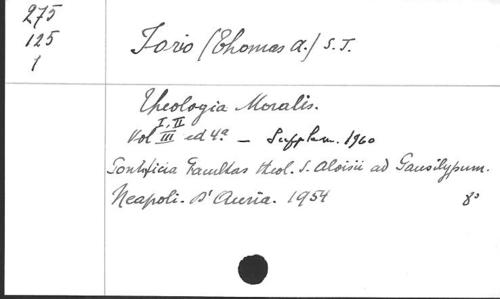 275
125
1
Iorio (Thomas a.) S. J.
Theologia Moralis.
I, II
Vol III ed 4ª — Supplem. 1960
Pontificia Facultas theol. S. Aloisii ad Pausilypum.
Neapoli. D'Auria. 1954 8°